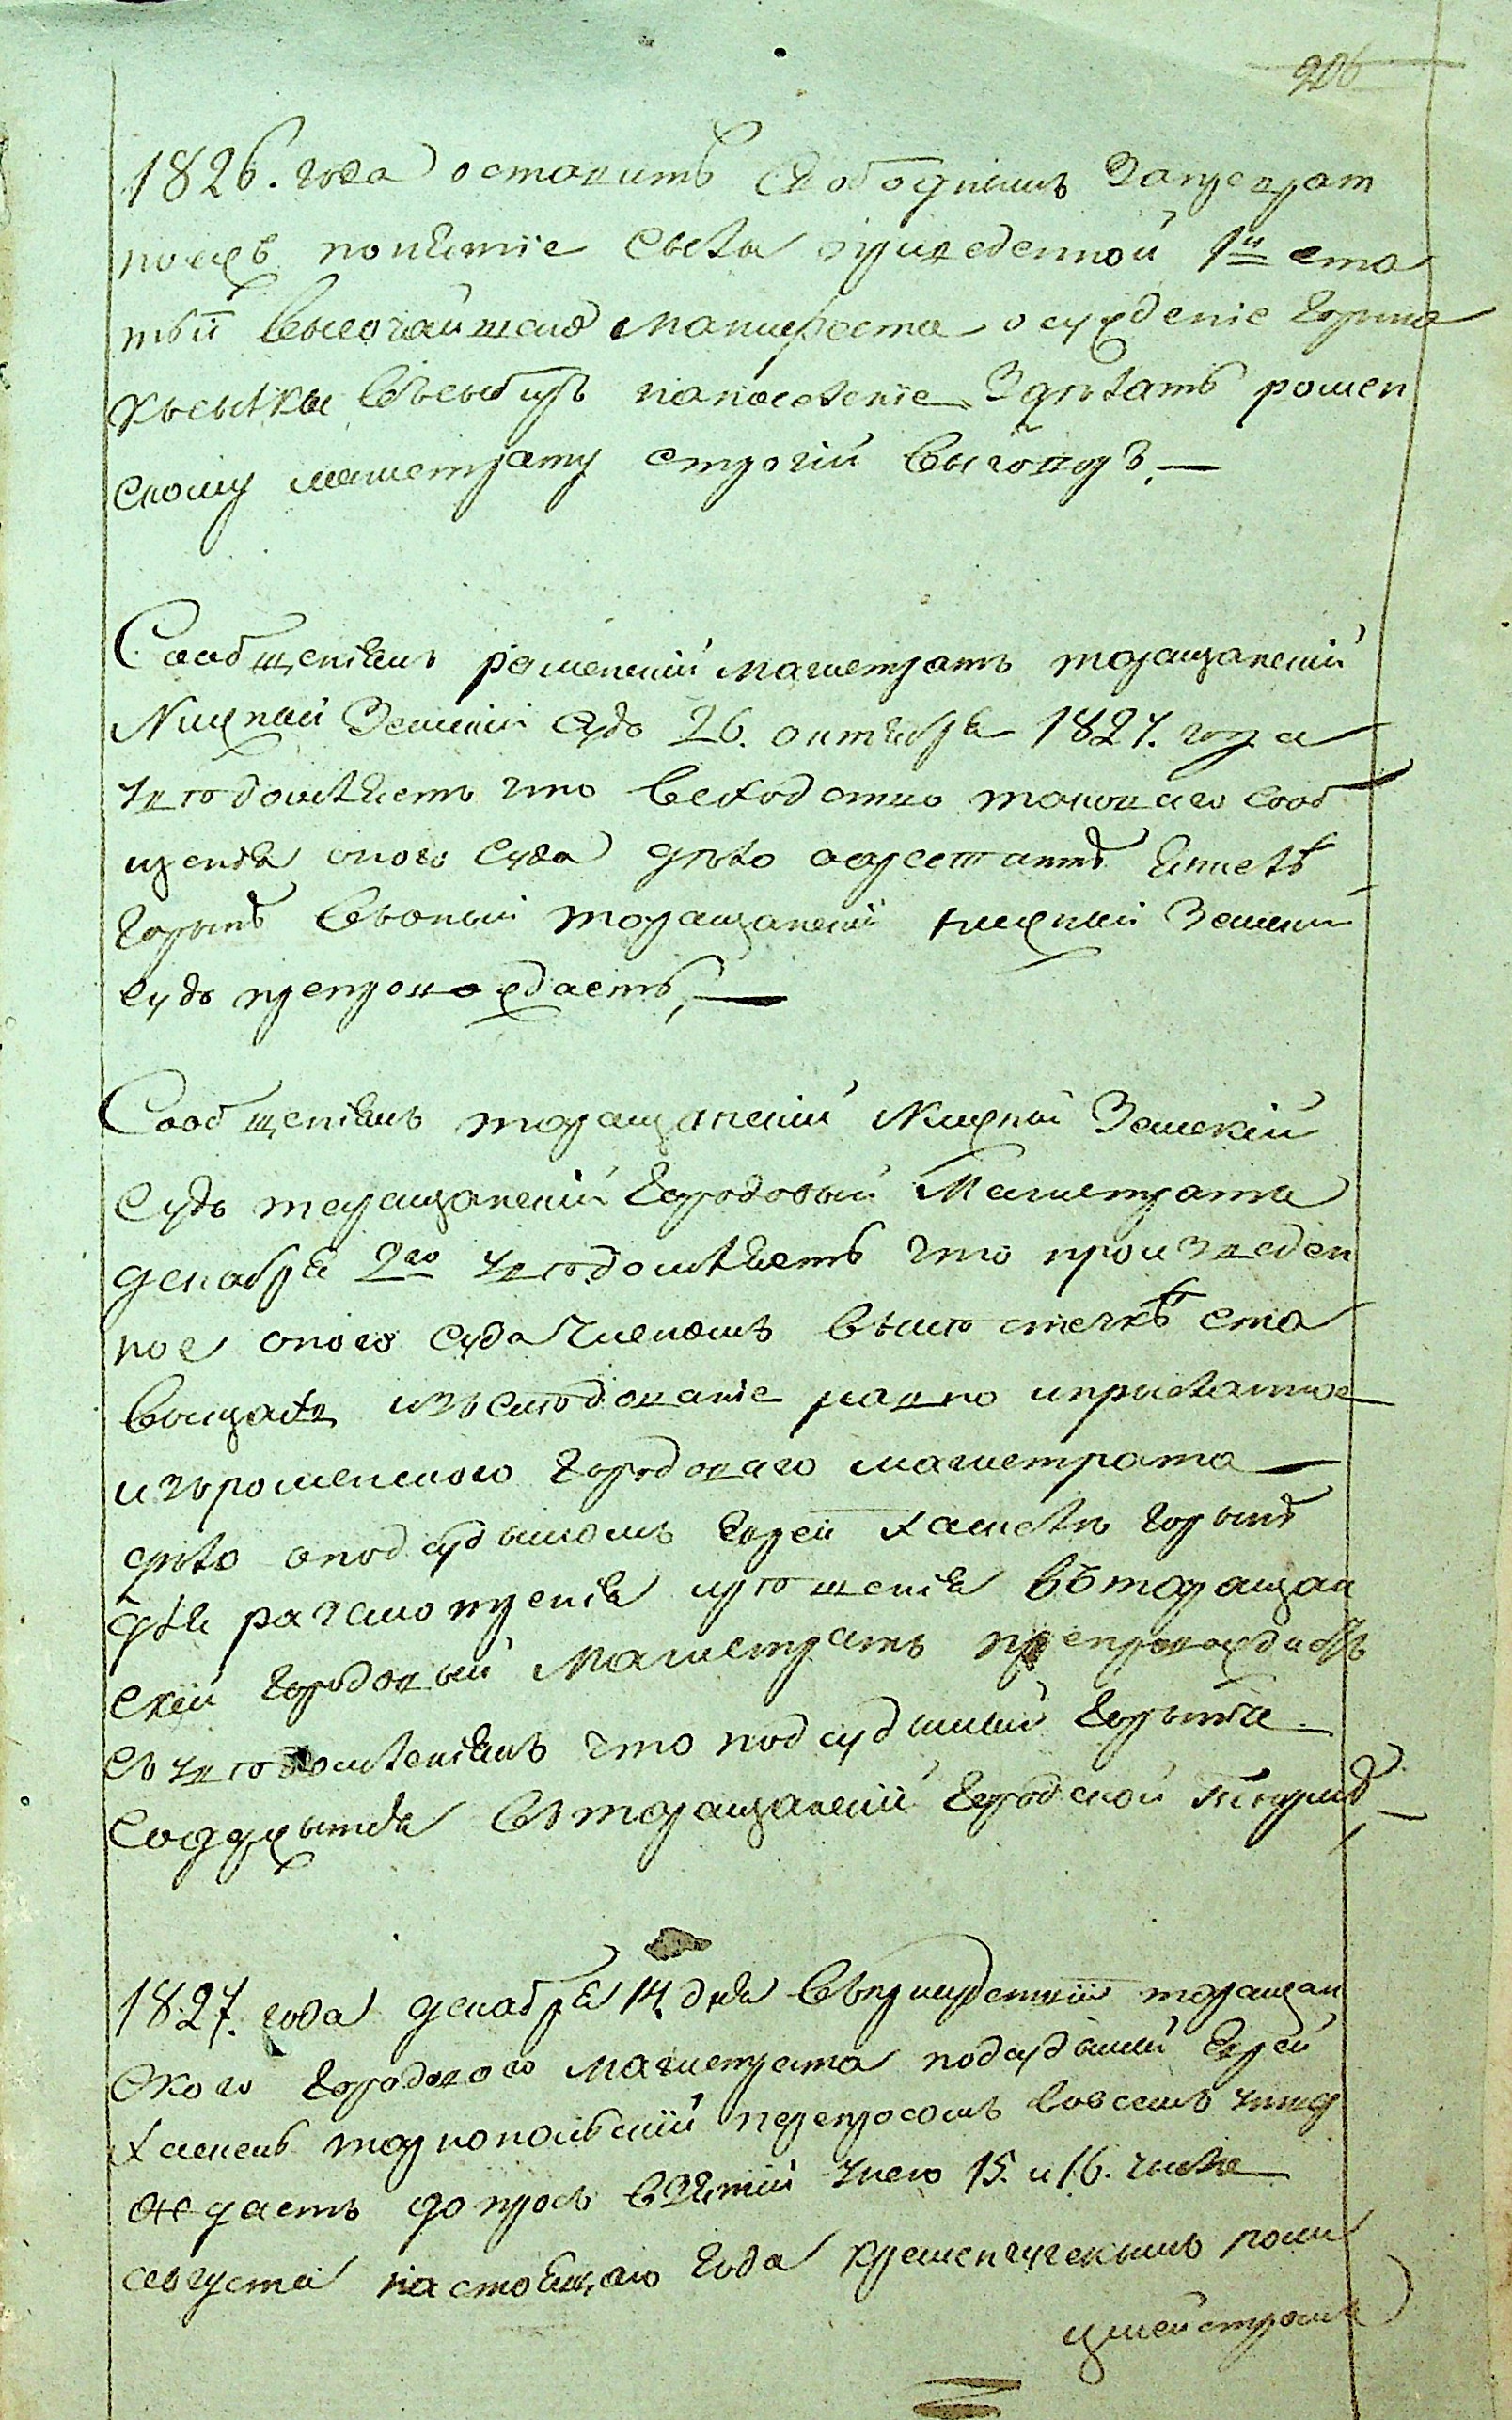 206
1826. года оставить свободнымъ Запреврат
ноежъ понятіе Сыла приведенной 1й ста
тьи Высочайшаго манифеста осужденіе Горина
ксылки въсыбирь напоселеніе Здѣлать ромен
скому магистрату строгій выговоръ,—
Сообщеніямъ роменскій магистратъ таращанскій
Нижный Земскій Судъ 26. октября 1827. года
увѣдомляетъ что вслѣдствіе таковаго сооб
щенія оного Суда дѣло оарестантѣ
Горинѣ Вьоный таращанскій нижный Земскій
Судъ препровождаетъ,—
Сообщеніямъ таращанскій Нижный Земскій
Судъ таращанскій Городовый Магистратъ
декабря 2го увѣдомляетъ что произведен
ное оного Суда Членомъ вмѣстечкѣ Ста
вищахъ изъслѣдованіе равно иприсланное
изъроменского Городоваго магистрата
дѣло оподсудимомъ Еврей Хаиме Горинѣ
для разсмотренія ирѣшенія въ таращан
скій Городовый Магистратъ препровождаетъ
съ увѣдомленіямъ что подсудимый Горинъ
Содержится въ таращанской Городской Тюрмѣ,—
1827. года декабря 14. дня Въприсудствіи таращан
ского Городового Магистрата подсудимый Еврей
Хаимъ тарнопольскій перепросомъ вовсемъ утвер
ждаетъ допросъ взятий унего 15. и 16. числа
августа настоящаго Года кременчугскимъ поли
цмейстромъ